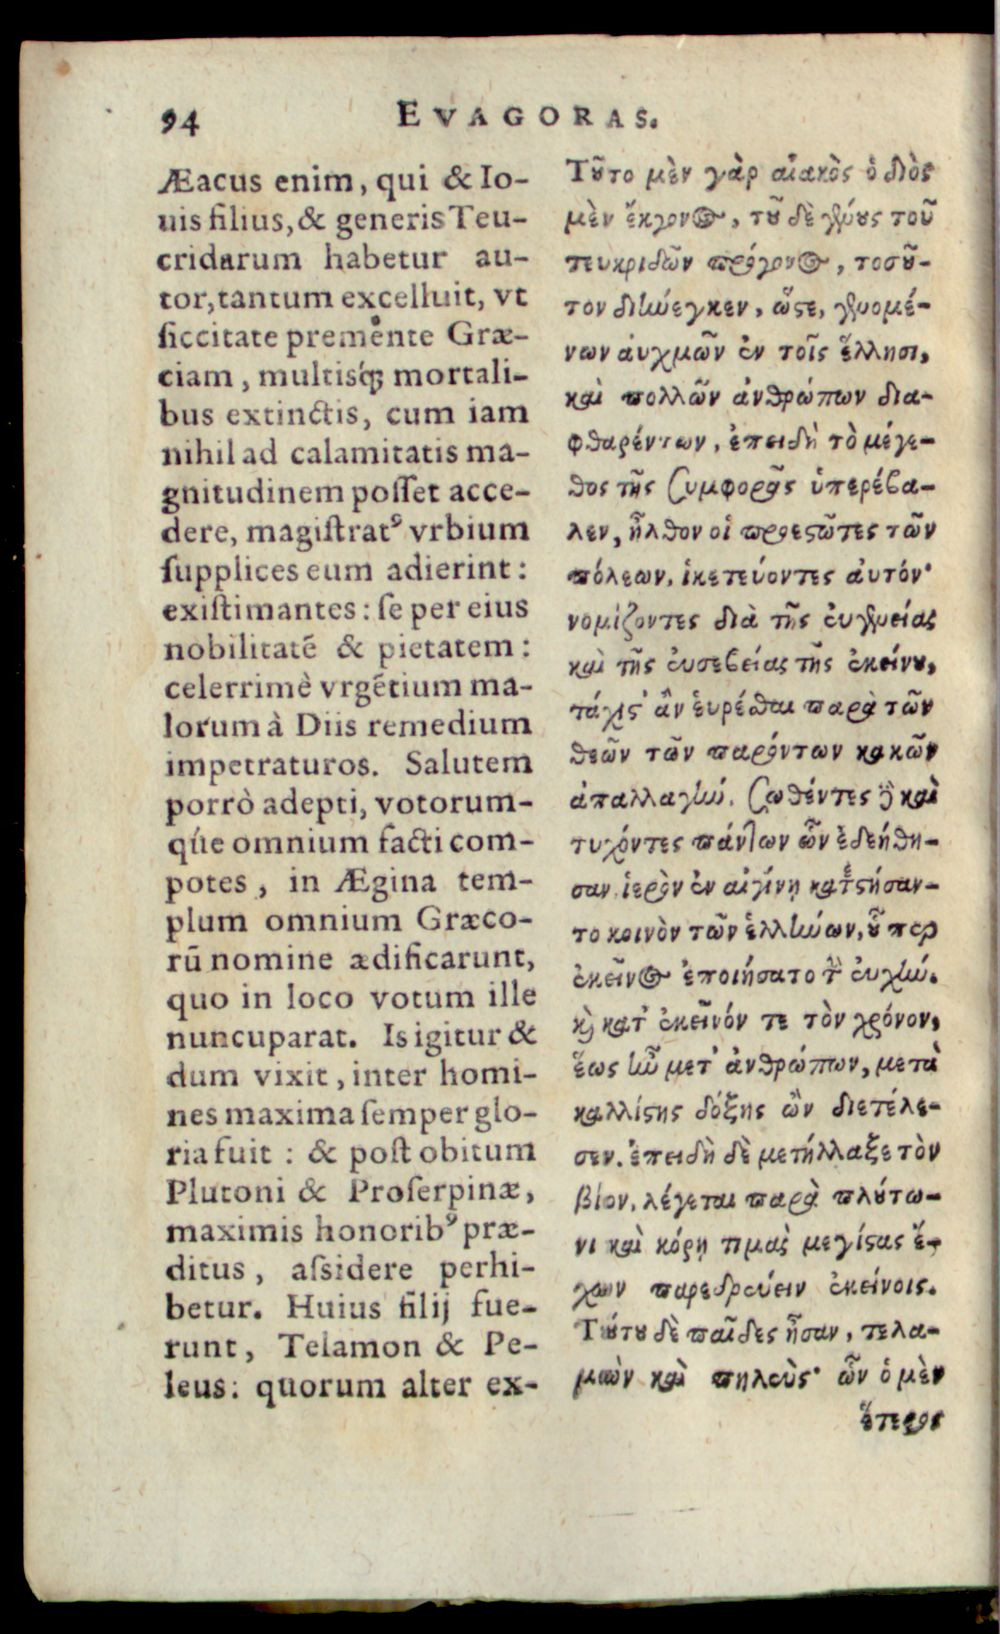 94 EVAGORAS.
Æacus enim, qui & Io-
uis filius, & generis Teu-
cridarum habetur au-
tor, tantum excelluit, vt
ſiccitate premente Græ-
ciam, multisq́; mortali-
bus extinctis, cum iam
nihil ad calamitatis ma-
gnitudinem poſſet acce-
dere, magiſtratꝰ vrbium
ſupplices eum adierint:
exiſtimantes: ſe per eius
nobilitatē & pietatem:
celerrimè vrgētium ma-
lorum à Diis remedium
impetraturos. Salutem
porrò adepti, votorum-
qúe omnium facti com-
potes, in Ægina tem-
plum omnium Græco-
rū nomine ædificarunt,
quo in loco votum ille
nuncuparat. Is igitur &
dum vixit, inter homi-
nes maxima ſemper glo-
ria fuit: & poſt obitum
Plutoni & Proſerpinæ,
maximis honoribꝰ præ-
ditus, aſsidere perhi-
betur. Huius filij fue-
runt, Telamon & Pe-
leus: quorum alter ex-
Τȣ͂το μὲν γὰρ αἰακὸς ὁ διὸς
μὲν ἔκγονος, τȣ͂ δὲ γένους τοῦ
τευκριδῶν πρόγονος, τοσȣ͂-
τον διήνεγκεν, ὥςε, γενομέ-
νων αὐχμῶν ἐν τοῖς ἕλλησι,
καὶ πολλῶν ἀνθρώπων δια-
φθαρέντων, ἐπειδὴ τὸ μέγε-
θος τῆς συμφορᾶς ὑπερέϐα-
λεν, ἦλθον οἱ προεςῶτες τῶν
πόλεων, ἱκετεύοντες αὐτόν·
νομίζοντες διὰ τῆς εὐγενείας
καὶ τῆς εὐσεϐείας τῆς ἐκείνȣ,
τάχις' ἂν εὑρέσθαι παρὰ τῶν
θεῶν τῶν παρόντων κακῶν
ἀπαλλαγήν. σωθέντες δὲ καὶ
τυχόντες πάντων ὧν ἐδεήθη-
σαν, ἱερὸν ἐν αἰγίνῃ κατεςήσαν-
το κοινὸν τῶν ἑλλήνων, ȣ͗͂περ
ἐκεῖνος ἐποιήσατο τὴν εὐχήν.
ϗ̀ κατ' ἐκεῖνόν τε τὸν χρόνον,
ἕως ἦν μετ' ἀνθρώπων, μετὰ
καλλίςης δόξης ὢν διετέλε-
σεν. ἐπειδὴ δὲ μετήλλαξε τὸν
βίον, λέγεται παρὰ πλȣ́τω-
νι καὶ κόρῃ τιμὰς μεγίςας ἔ-
χων παρεδρεύειν ἐκείνοις.
Τȣ́τȣ δὲ παῖδες ἦσαν, τελα-
μὼν καὶ πηλεὺς· ὧν ὁ μὲν
ἕτερος